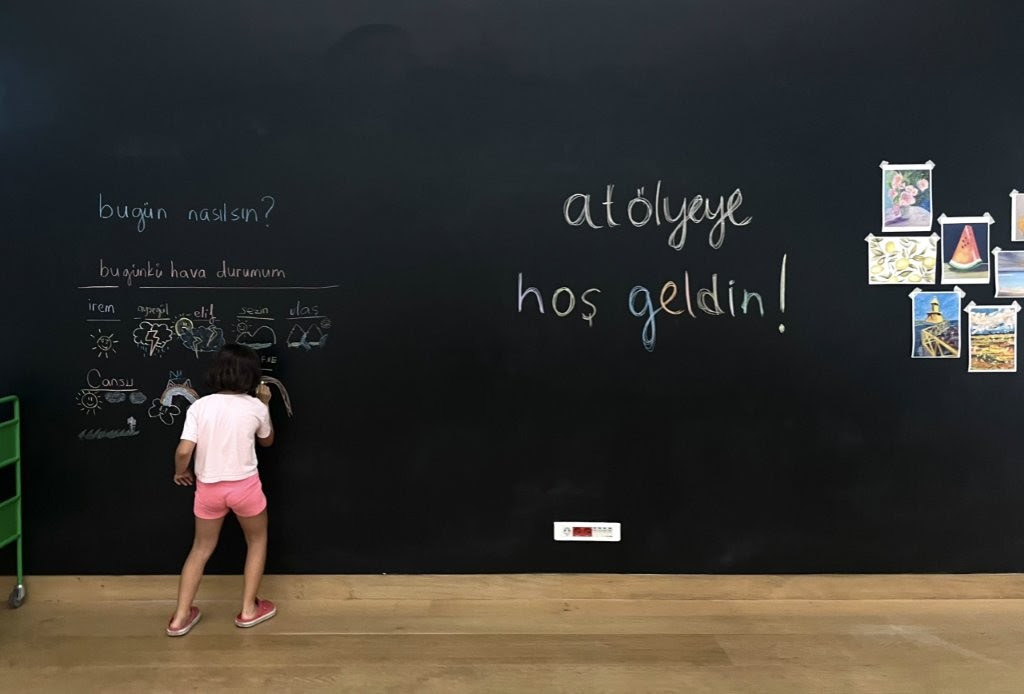 bugün nasılsın?
bugünkü hava durumum
irem ayşegül elif sezin ulaş
Cansu
atölyeye
hoş geldin!